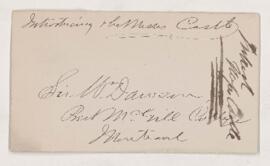 Introducing the Misses Castle
Sir Wm Dawson
McGill College
Montreal